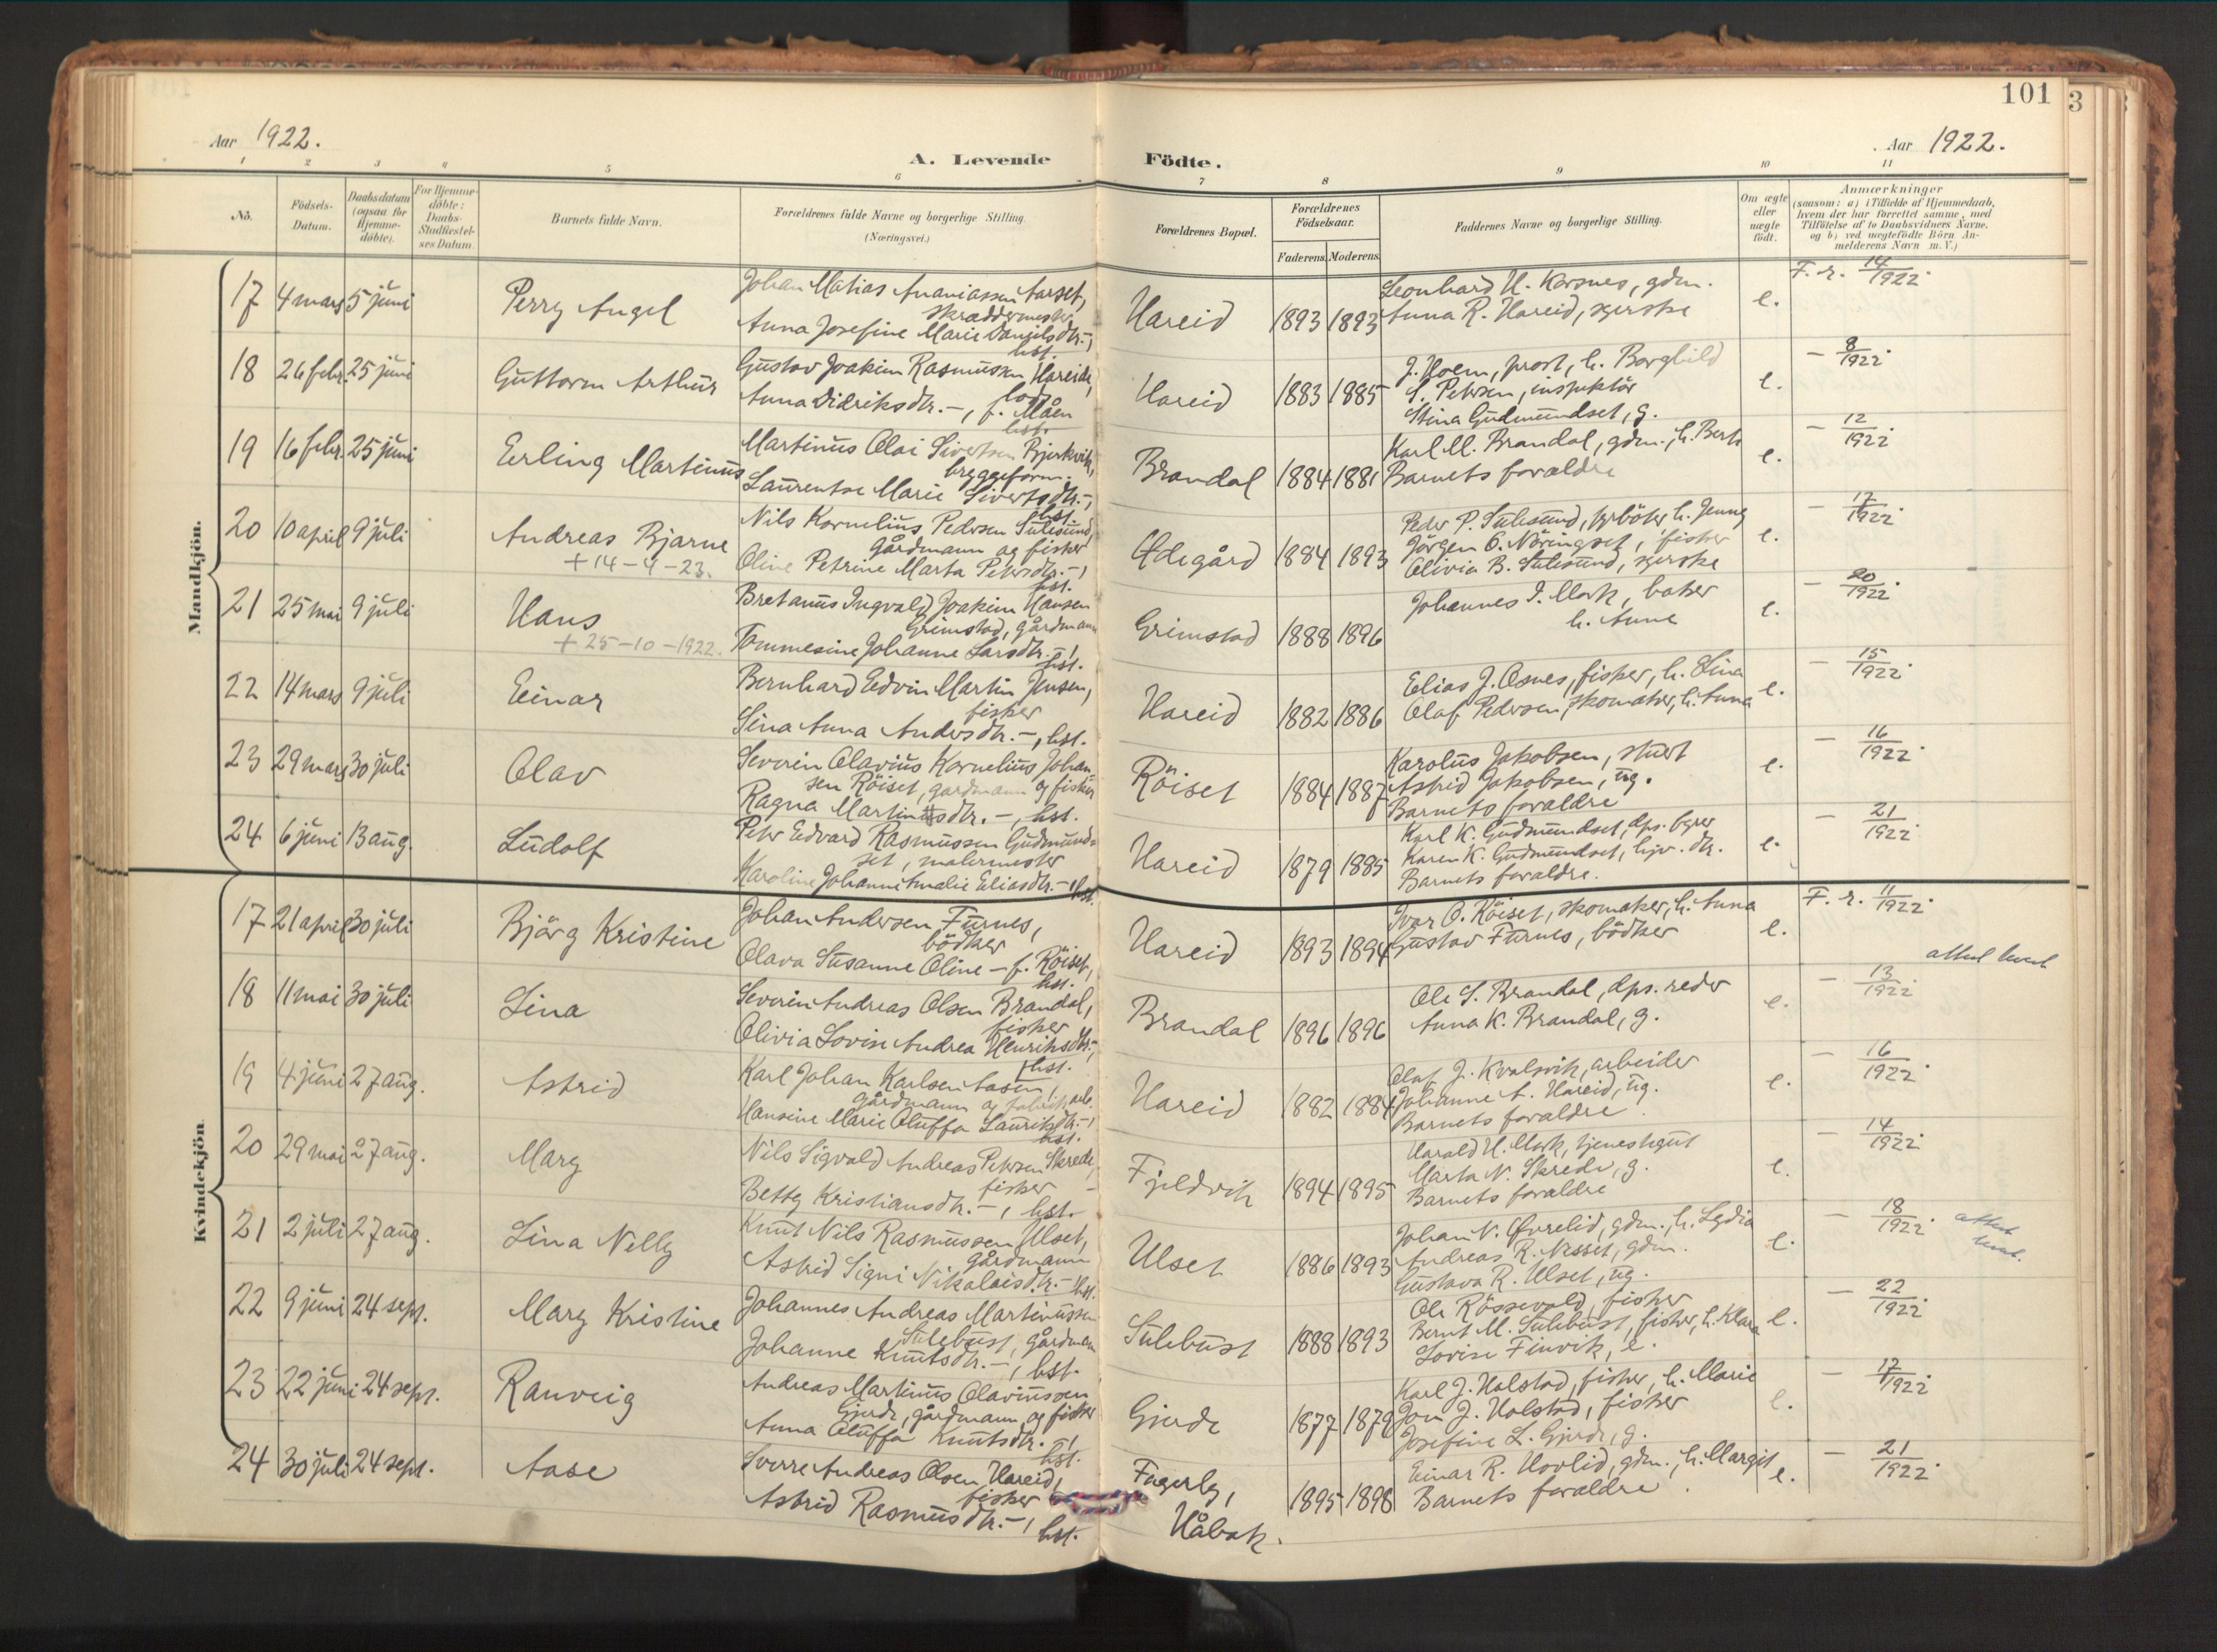 101
3
Aar 1922.
A. Levende Födte.
Aar 1922.
1 2 3 4 5 6 7 8 9 10 11
No.
Födsels-Datum.
Daabsdatum (ogsaa for Hjemme-döbte).
For Hjemme-döbte: Daabs-Stadfæstel-ses Datum.
Barnets fulde Navn.
Forældrenes fulde Navne og borgerlige Stilling.
(Næringsvei.)
Forældrenes Bopæl.
Forældrenes Födselsaar.
Faderens. Moderens.
Faddernes Navne og borgerlige Stilling.
Om ægte eller uægte födt.
Anmærkninger
(saasom: a) i Tilfælde af Hjemmedaab, hvem der har forrettet samme, med Tilföielse af to Daabsvidners Navne, og b) ved uægtefödte Börn An-melderens Navn m. V.)
Mandkjön.
17 4 mars 5 juni Perry Angel
Johan Matias Ananiassen Aarset,
skræddermester
Anna Josefine Marie Danielsdtr.-,
hst.
Hareid 1893 1893
Leonhard H. Korsnes, gdm.
Anna R. Hareid, syerske
e. F. r. 14/1922.
18 26 febr. 25 juni Guttorm Arthur
Gustav Joakim Rasmussen Hareide,
Anna Didriksdtr. -, f. Måen
hst.
Hareid 1883 1885
J. Hoem, prost, h. Borghild
S. Petersen, inspektör
Stina Gudmundset, g.
e. - 8/1922.
19 16 febr. 25 juni Erling Martinus
Martinus Olai Sivertsen Bjerkvik,
bryggeform.
Laurentse Marie Sivertsdtr.-,
hst.
Brandal 1884 1881
Karl M. Brandal, gdm., h. Berte
Barnets foræ̈ldre
e. - 12/1922.
20 10 april 9 juli Andreas Bjarne
+ 14-4-23.
Nils Kornelius Pedersen Sulesund
gårdmann og fisker
Oline Petrine Marta Petersdtr.-,
hst.
Ødegård 1884 1893
Peder P. Sulesund, h. Jenny
Jörgen O. Nöringset, fisker
Olivia B. Sulesund, syerske
e. - 17/1922.
21 25 mai 9 juli Hans
+ 25-10-1922.
Bretanus Ingvald Joakim Hansen
Grimstad, gårdmann
Tommesine Johanne Larsdtr.-,
hst.
Grimstad 1888 1896
Johannes I. Mork, baker
h. Anne
e. - 20/1922.
22 14 mars 9 juli Einar
Bernhard Edvin Martin Jensen,
fisker
Sina Anna Andersdtr.-, hst.
Hareid 1882 1886
Elias J. Osnes, fisker, h. Lina
Olaf Pedersen, skomaker, h. Anna
e. - 15/1922.
23 29 mars 30 juli Olav
Severin Olavius Kornelius Johan-
sen Röiset, gardmann og fisker
Ragna Martinusdtr. -, hst.
Röiset 1884 1887
Karolus Jakobsen, stuert
Astrid Jakobsen, ug.
Barnets forældre
e. - 16/1922.
24 6 juni 13 aug. Ludolf
Peter Edvard Rasmussen Gudmund-
set, malermester
Karoline Johanne Amalie Eliasdtr.-, hst.
Hareid 1879 1885
Karl K. Gudmundset, dps. fyrer
Karen K. Gudmundset, dtr.
Barnets forældre.
e. - 21/1922.
Kvindekjön.
17 21 april 30 juli Bjärg Kristine
Johan Andersen Furnes,
bödker
Olava Susanne Oline - f. Röiset,
hst.
Hareid 1893 1894
Ivar O. Röiset, skomaker, h. Anna
Gustav Furnes, bödker
e. F. r. 11/1922.
attest
18 11 mai 30 juli Lina
Severin Andreas Olsen Brandal,
fisker
Olivia Lovise Andrea Henriksdtr.-,
hst.
Brandal 1896 1896
Ole S. Brandal, dps. reder
Anna K. Brandal, g.
e. - 13/1922.
19 4 juni 27 aug. Astrid
Karl Johan Karlsen Aasen,
gårdmann og fabrikarb.
Hansine Marie Oluffa Lauritsdtr.-,
hst.
Hareid 1882 1884
Olaf J. Kvalsvik, arbeider
Johanne A. Hareid, ug.
Barnets forældre.
e. - 16/1922.
20 29 mai 27 aug. Mary
Nils Sigvald Andreas Petersen Skrede,
fisker
Betty Kristiansdtr. -, hst.
Fjeldvik 1894 1895
Harald H. Mork, tjenestegut
Marta N. Skrede, g.
Barnets forældre
e. - 14/1922.
21 2 juli 27 aug. Lina Nelly
Knut Nils Rasmussen Ulset,
gårdmann
Astrid Signi Nikolaisdtr.- hst.
Ulset 1886 1893
Johan N. Øvrelid, gdm., h. Lydia
Andreas R. Nesset, gdm.
Gustava R. Ulset, ug.
e. - 18/1922. attest
22 9 juni 24 sept. Mary Kristine
Johannes Andreas Martinussen
Sulebust, gårdman
Johanne Knutsdtr. -, hst.
Sulebust 1888 1893
Ole Rössevold, fisker
Bernt M. Sulebust, fisker, h. Klara
Lovise Finvik, e.
e. - 22/1922.
23 22 juni 24 sept. Ranveig
Andreas Martinus Olaviussen
Gjerde, gårdmann og fisker
Anna Oluffa Knutsdtr. -,
hst.
Gjerde 1877 1879
Karl J. Holstad, fisker, h. Marie
Jon J. Holstad, fisker
Josefine L. Gjerde, g.
e. - 17/1922.
24 30 juli 24 sept. Aase
Sverre Andreas Olsen Hareid,
fisker
Astrid Rasmusdtr. -, hst.
Fagerly,
Håbak.
1895 1898
Einar R. Hovlid, gdm., h. Margit
Barnets forældre.
e. - 21/1922.